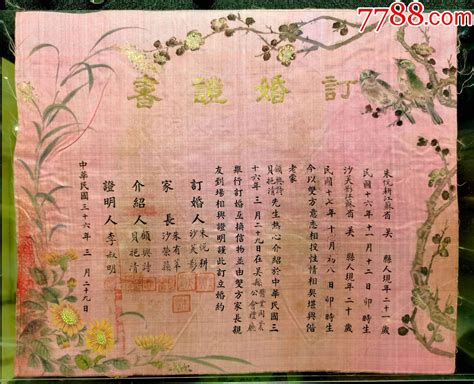 7788.com
訂婚說書
朱悅耕江蘇省吳縣人現年二十一歲
民國十六年十一月十二日卯時生
沙美彩江蘇省吳縣人現年二十歲
民國十七年十月初八日卯時生
今以雙方意志相投性情相契
顧興詩
貝挹清先生熱心介紹於中華民國三
十六年三月二十九日在吳縣
舉行訂婚互換信物並由雙方家長親
友到場相與證明謹此訂立婚約
訂婚人 朱悅耕
沙美彩
家長 朱有華
沙榮蓀
介紹人 顧興詩
貝挹清
證明人 李叔明
中華民國三十六年三月二十九日